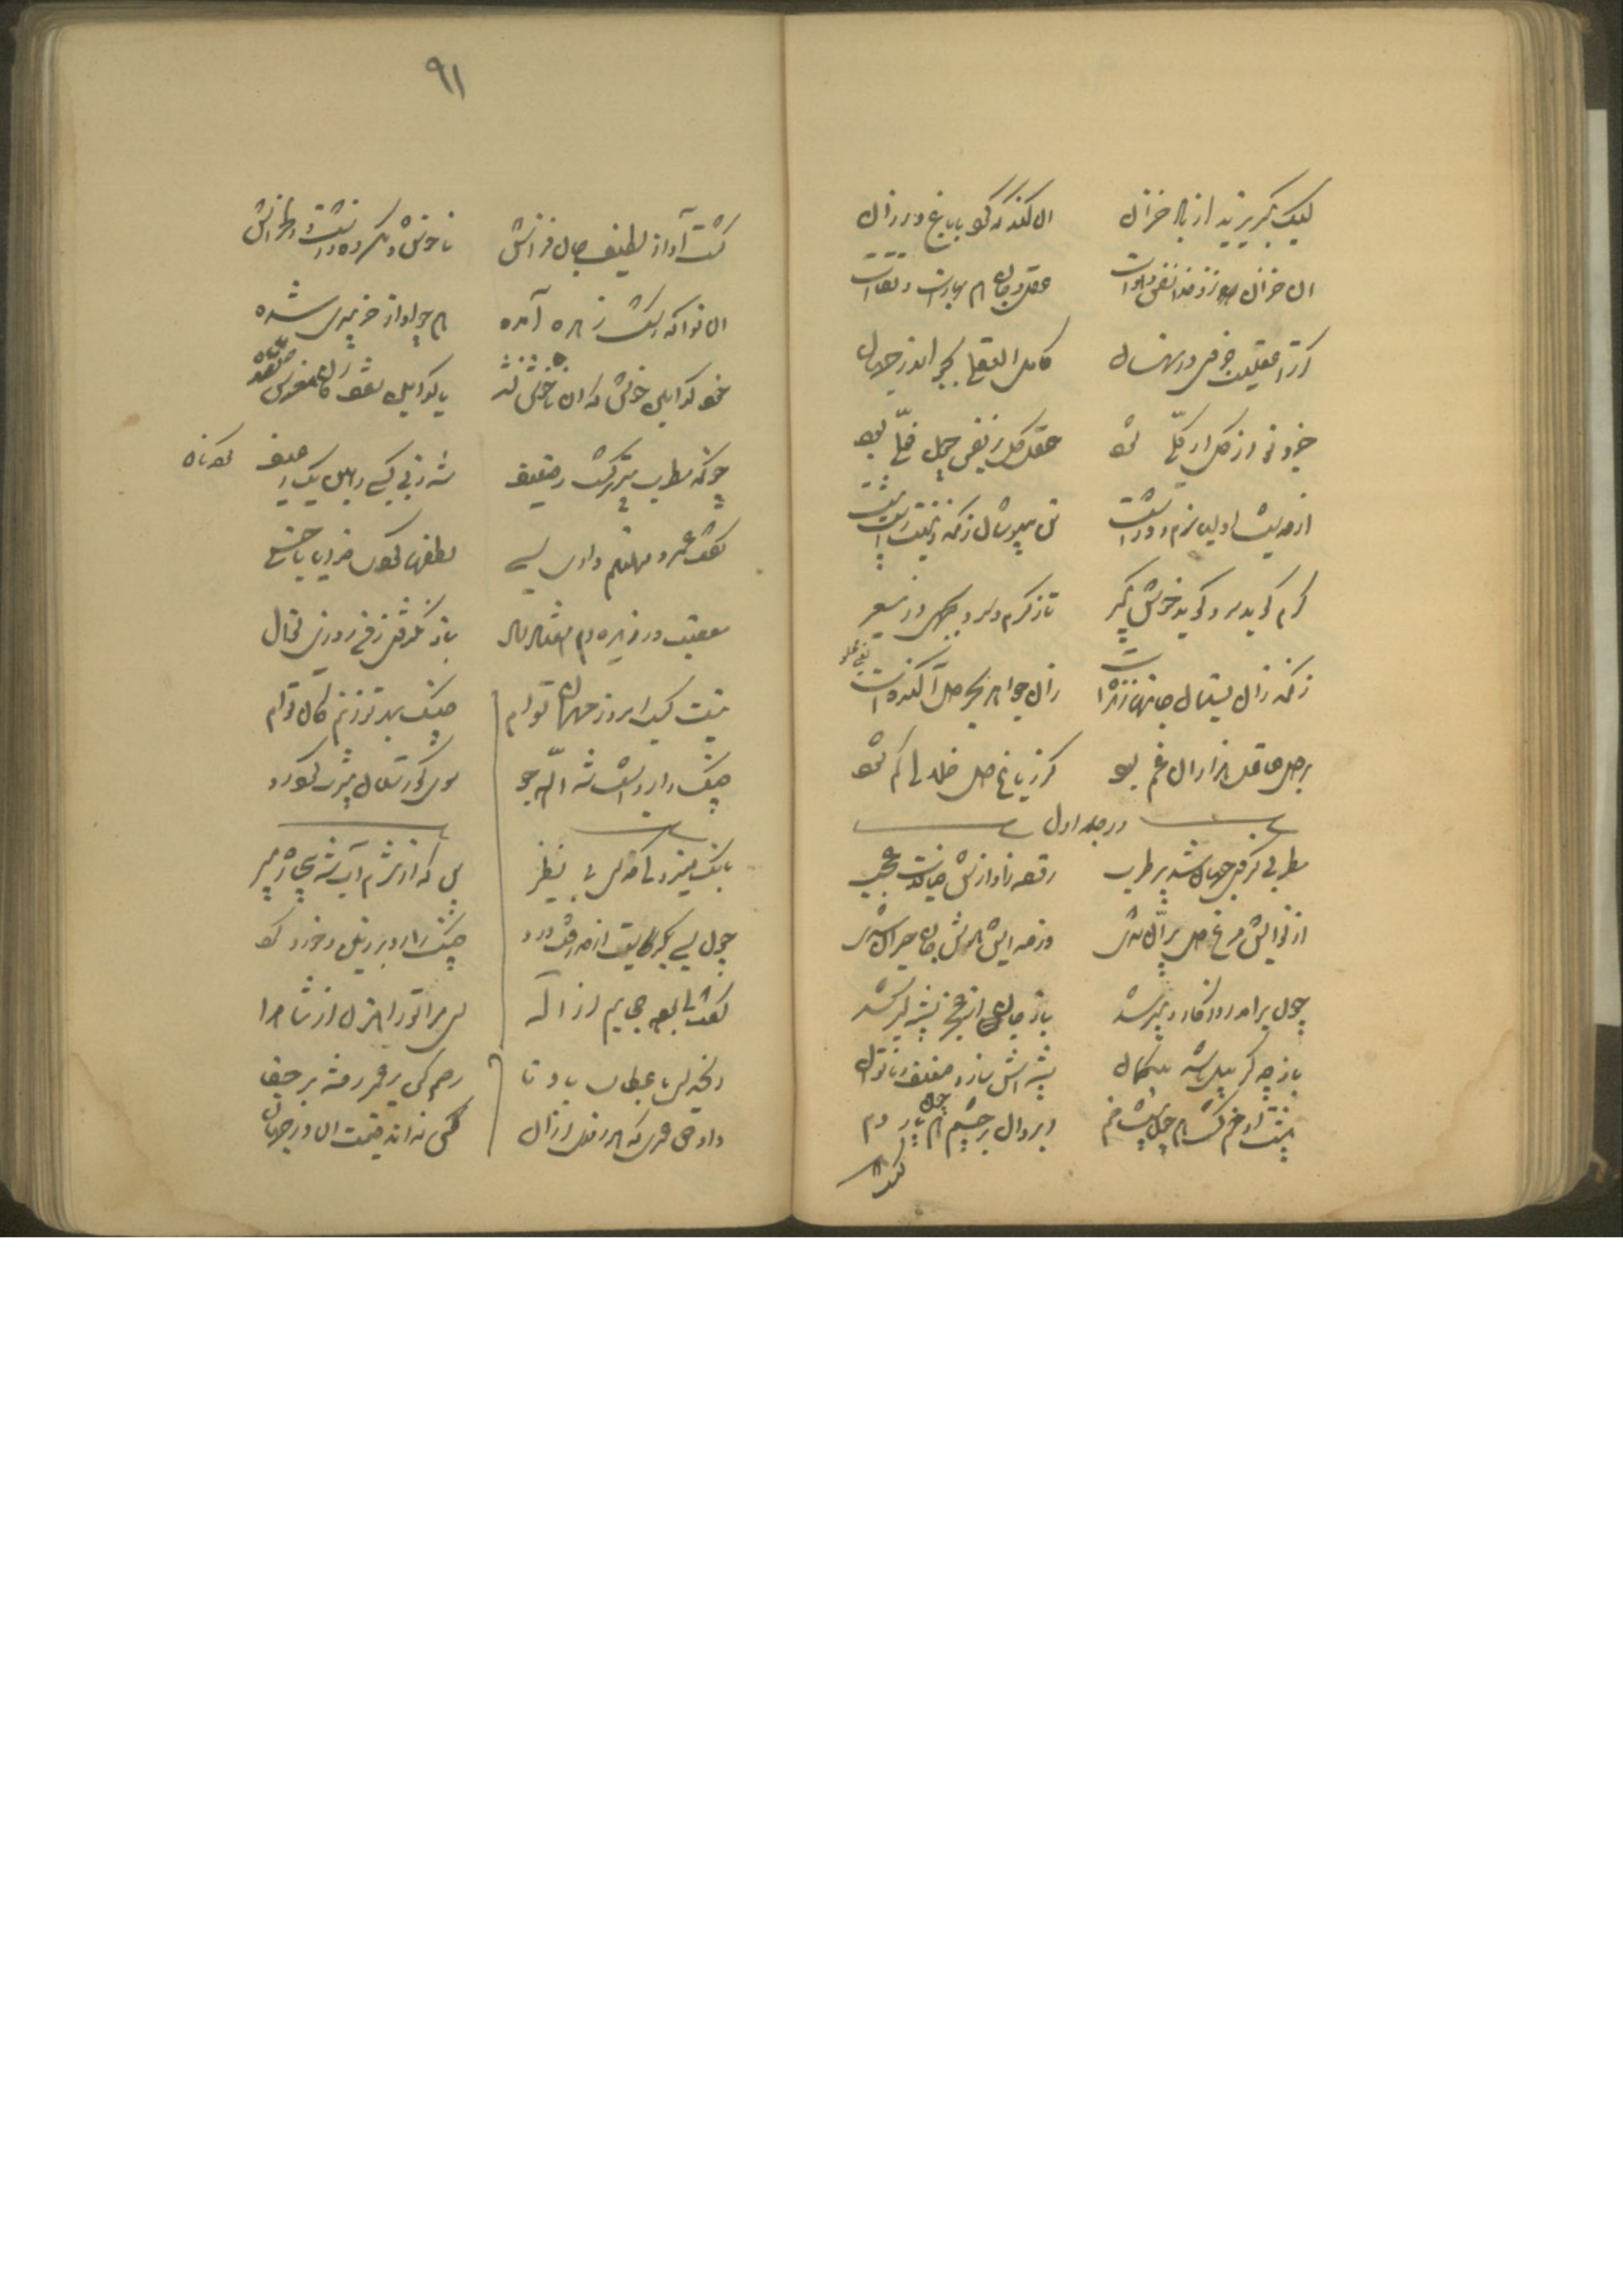 لیک بگریزید از باد خزان آن کند کو کرد با باغ و رزان
آن خزان نزد خدا نفس و هواست عقل و جان هم بهارست و بقاست
گر ترا عقلیست جزوی در نهان کامل العقلی بجو اندر جهان
جزو تو از کل او کلی شود عقل کل بر نفس چون غلی بود
از حدیث اولیا نرم و درشت تن مپوشان زانکه دینت راست پشت
گرم گوید سرد گوید خوش بگیر تا ز گرم و سرد بجهی وز سعیر
زانکه زان بستان جانها زنده است زان جواهر بحر دل آکنده است
بر دل عاقل هزاران غم بود گر ز باغ دل خلالی کم شود
در جلد اول
مطربی کز وی جهان شد پر طرب رسته ز آوازش خیالات عجب
از نوایش مرغ دل پران شدی وز صدایش هوش جان حیران شدی
چون برآمد روزگار و پیر شد باز جانش از عجز پشه گیر شد
باز چه گر پیل باشد بیگمان پشه اش سازد ضعیف و ناتوان
پشت او خم گشت همچون پشت خم ابروان بر چشم همچون پاردم
گشت
۹۱
گشت آواز لطیف جان فزاش ناخوش و مکروه و زشت و دلخراش
آن نوا که رشک زهره آمده همچو آواز خر پیری شده
خود کدامین خوش که آن ناخوش نشد یا کدامین سقف کان مفرش نشد
چونکه مطرب پیرتر گشت و ضعیف شد ز بی کسبی رهین یک رغیف
گفت عمر و مهلتم دادی بسی لطفها کردی خدایا با خسی
معصیت ورزیده ام هفتاد سال باز نگرفتی ز من روزی نوال
نیست کسب امروز مهمان توام چنگ بهر تو زنم کان توام
چنگ را برداشت شد الله جو سوی گورستان یثرب آه گو
بانگ میزد کای خدای بی نظیر
چون بسی بگریست از حد رفت درد چنگ را زد بر زمین و خرد کرد
گفت ای بوده حجابم از اله ای مرا تو راهزن از شاهراه
ای خدای با عطای با وفا رحم کن بر عمر رفته بر جفا
داد حق عمری که هر روزی از آن کس نداند قیمت آن در جهان